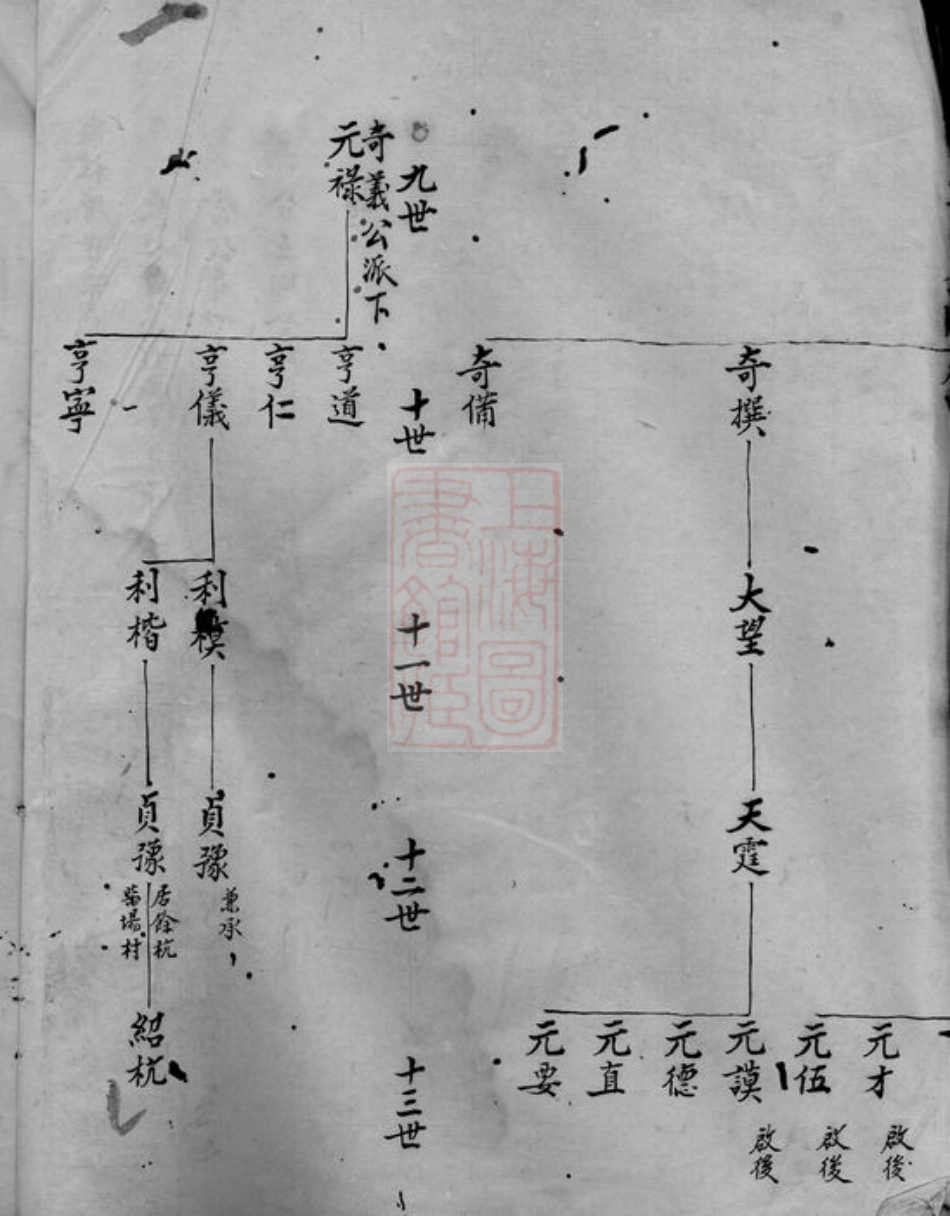 奇撰
大望
天霆
元才
啟後
元伍
啟後
元謨
啟後
元德
元直
元要
奇備
九世
十世
十一世
十二世
十三世
奇義公派下
元祿
亨道
亨仁
亨儀
利模
貞豫
兼承
利楷
貞豫
居餘杭
柴場村
紹杭
亨寧
上海圖
書館藏